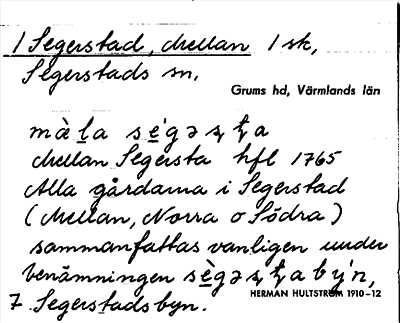 1 Segerstad, Mellan 1 sk,
Segerstads sn.
Grums hd, Värmlands län
mà̀ḷa sé̱gəʂʈa
Mellan Segersta hfl 1765
Alla gårdarna i Segerstad
(Mellan, Norra o Södra)
sammanfattas vanligen under
benämningen sè̱gəʂʈabýn,
7. Segerstadsbyn.
HERMAN HULTSTRÖM 1910-12